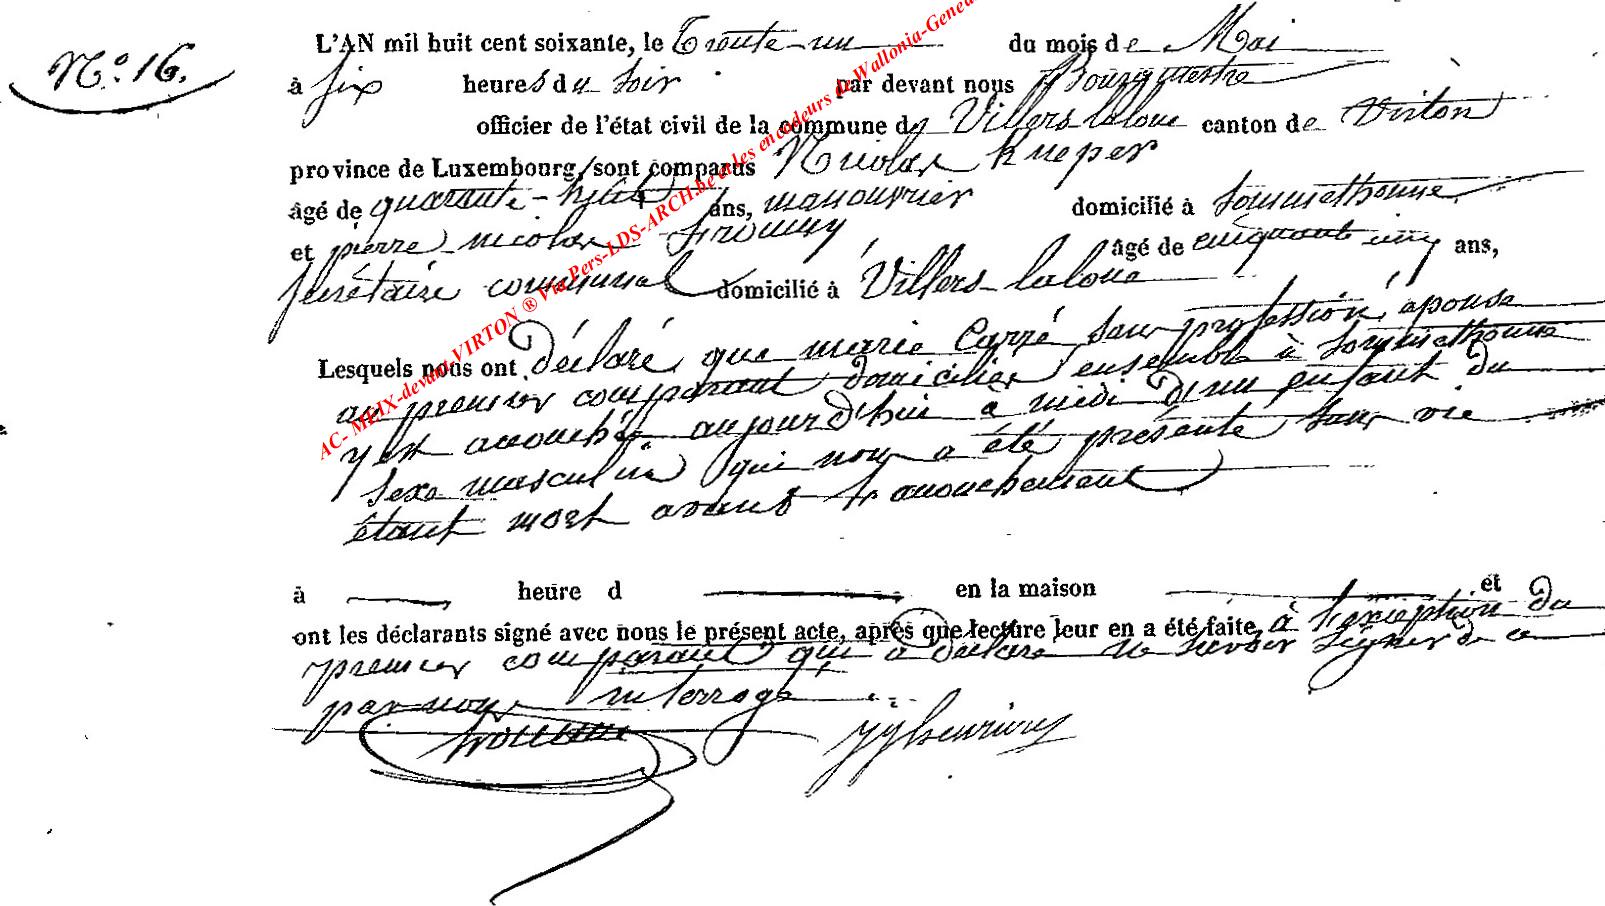 N.° 16.
L'AN mil huit cent soixante, le Trente-un du mois de Mai
à six heures du soir par devant nous Bourgmestre
officier de l'état civil de la commune d Villers laloue canton de Virton
province de Luxembourg, sont comparus Nicolas Kneper
âgé de quarante-huit ans, manouvrier domicilié à Sommethonne
et pierre nicolas âgé de cinquante cinq ans,
secrétaire communal domicilié à Villers-laloue
Lesquels nous ont déclaré que marie Carré sans profession, épouse
au premier comparant domicilier ensemble à Sommethonne
y est accouchée aujourd'hui à midi d'un enfant du
sexe masculin qui nous a été présenté sans vie
étant mort avant l'accouchement
à heure d en la maison et
ont les déclarants signé avec nous le présent acte, après que lecture leur en a été faite, à l'exception du
premier comparant qui a déclaré ne savoir signer de ce
par nous interrogé
AC- MEIX-devant-VIRTON ® Via Pers-LDS-ARCH.be et les encodeurs de Wallonia-Genea